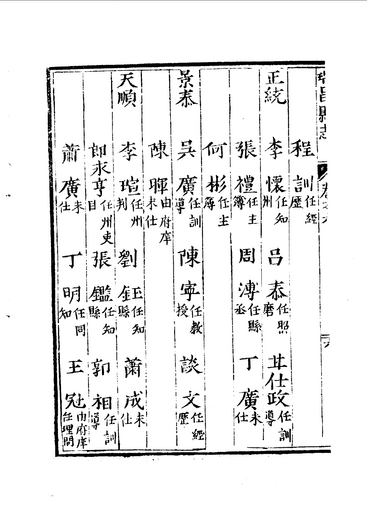 程訓任經歷
正統 李懷任知州 呂泰任照磨 甘仕政任訓導
張禮任主簿 周溥任縣丞 丁廣未仕
何彬任主簿
景泰 吳廣任訓導 陳寧任教授 談文任經歷
陳暉由府庠未仕
天順 李瑄任州判 劉鈺任知縣 蕭成未仕
郎永亨任州吏目 張鑑任知縣 郭相任訓導
蕭廣未仕 丁明任同知 王冠由府庠任理問